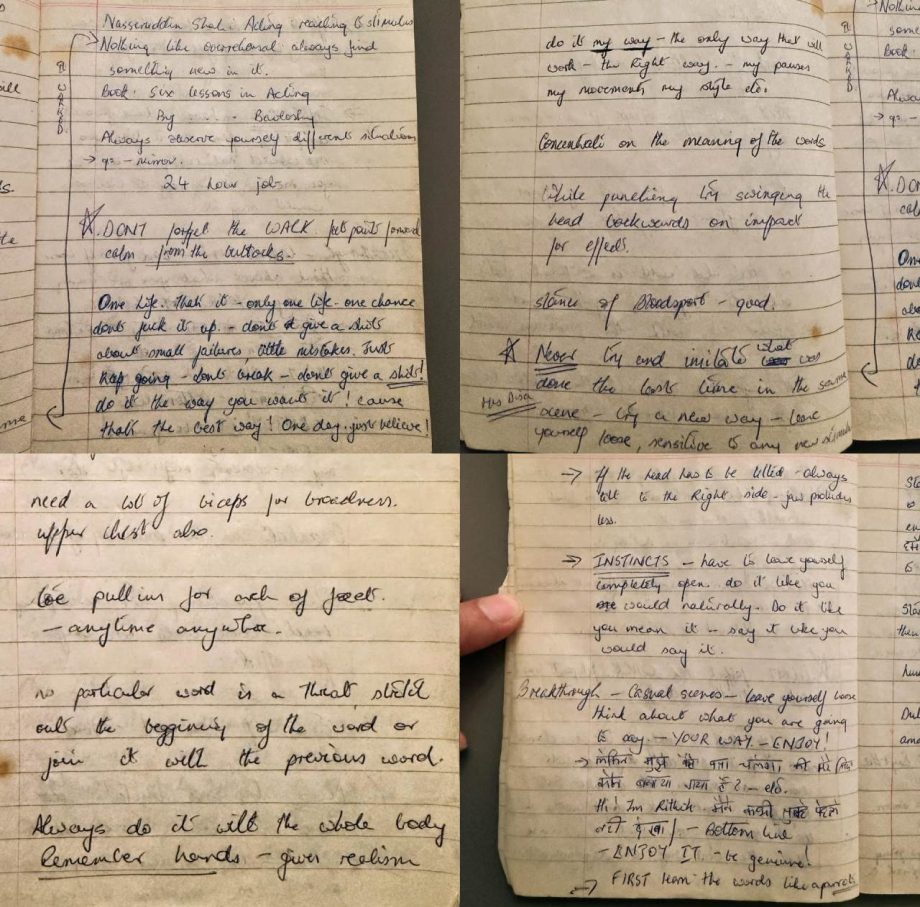 Nasseruddin Shah: Acting reacting to stimulus
Nothing like overrehersal always find
something new in it.
Book: Six lessons in Acting
By ..... -
Always observe yourself different situations
→ - mirror.
24 hour jobs
DONT forget the WALK feet point forward
calm from the buttocks.
One life. that it - only one life - one chance
dont fuck it up. - dont give a shits
about small failures little mistakes. Just
Keep going - dont break - dont give a shits!
do it the way you want it! cause
thats the best way! One day. just believe!
IT WORKED
do it my way - the only way that will
work - the Right way. - my pauses
my movements my style etc.
Concentrate on the meaning of the words
While punching try swinging the
head backwards on impact
for effects.
stance of Bloodsport - good.
Never try and imitate what was
done the last time in the same
scene - try a new way - leave
yourself loose, sensitive to any new
need a lot of biceps for broadness.
upper chest also.
toe pull ins for arch of feet.
- anytime anywhere.
no particular word is a Threat stretch
outs the beggining of the word or
join it with the previous word.
Always do it with the whole body
Remember hands - gives realism
→ If the head has to be tilted - always
tilt to the Right side - jaw protudes
less.
⇒ INSTINCTS - have to leave yourself
completely open. do it like you
would naturally. Do it like
you mean it - say it like you
would say it.
Breakthrough - Casual scenes - leave yourself loose
think about what you are going
to say. - YOUR WAY - ENJOY!
→ लेकिन मुझे कैसे पता चलेगा की मेरे लिए
कौन बनाया गया है? - etc.
Hi! Im Rithik. मैंने कभी तुम्हे पहले
नही देखा / - Bottom line
- ENJOY IT. - be genuine!
→ FIRST learn the words like a parrot